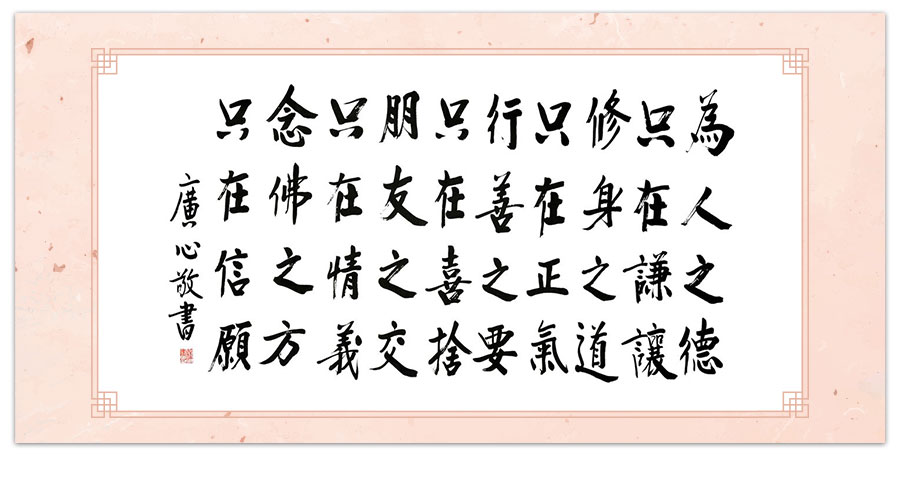 為人之德
只在謙讓
修身之道
只在正氣
行善之要
只在喜捨
朋友之交
只在情義
念佛之方
只在信願
廣心敬書